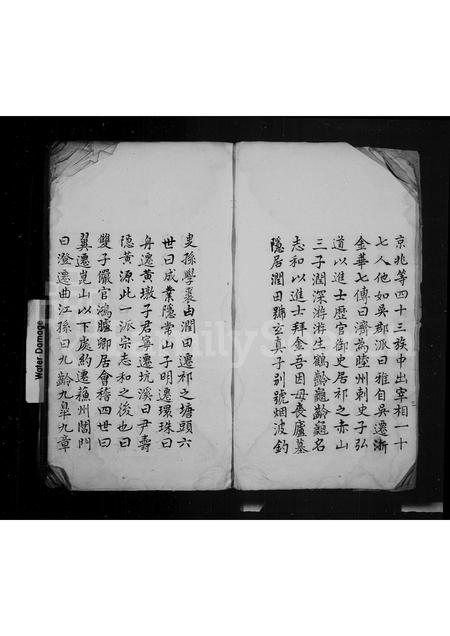 京兆等四十三族中出宰相一十
七人他如吳郡派曰雅自吳遷浙
金華七傳曰濟為睦州刺史子弘
道以進士歷官御史居祁之赤山
三子潤深游游生鶴齡龜齡龜名
志和以進士拜金吾因母喪廬墓
隱居潤田號玄真子别號烟波釣
叟孫學裘由潤田遷祁之塘頭六
世曰成業隱常山子明遷環珠曰
舟遷黃墩子君寧遷坑溪曰尹壽
隱黃源此一派宗志和之後也曰
雙子儼官鴻臚卿居會稽四世曰
翼遷崑山以下處約遷蘓州閶門
曰澄遷曲江孫曰九齡九臯九章
Water Damage
FamilySearch